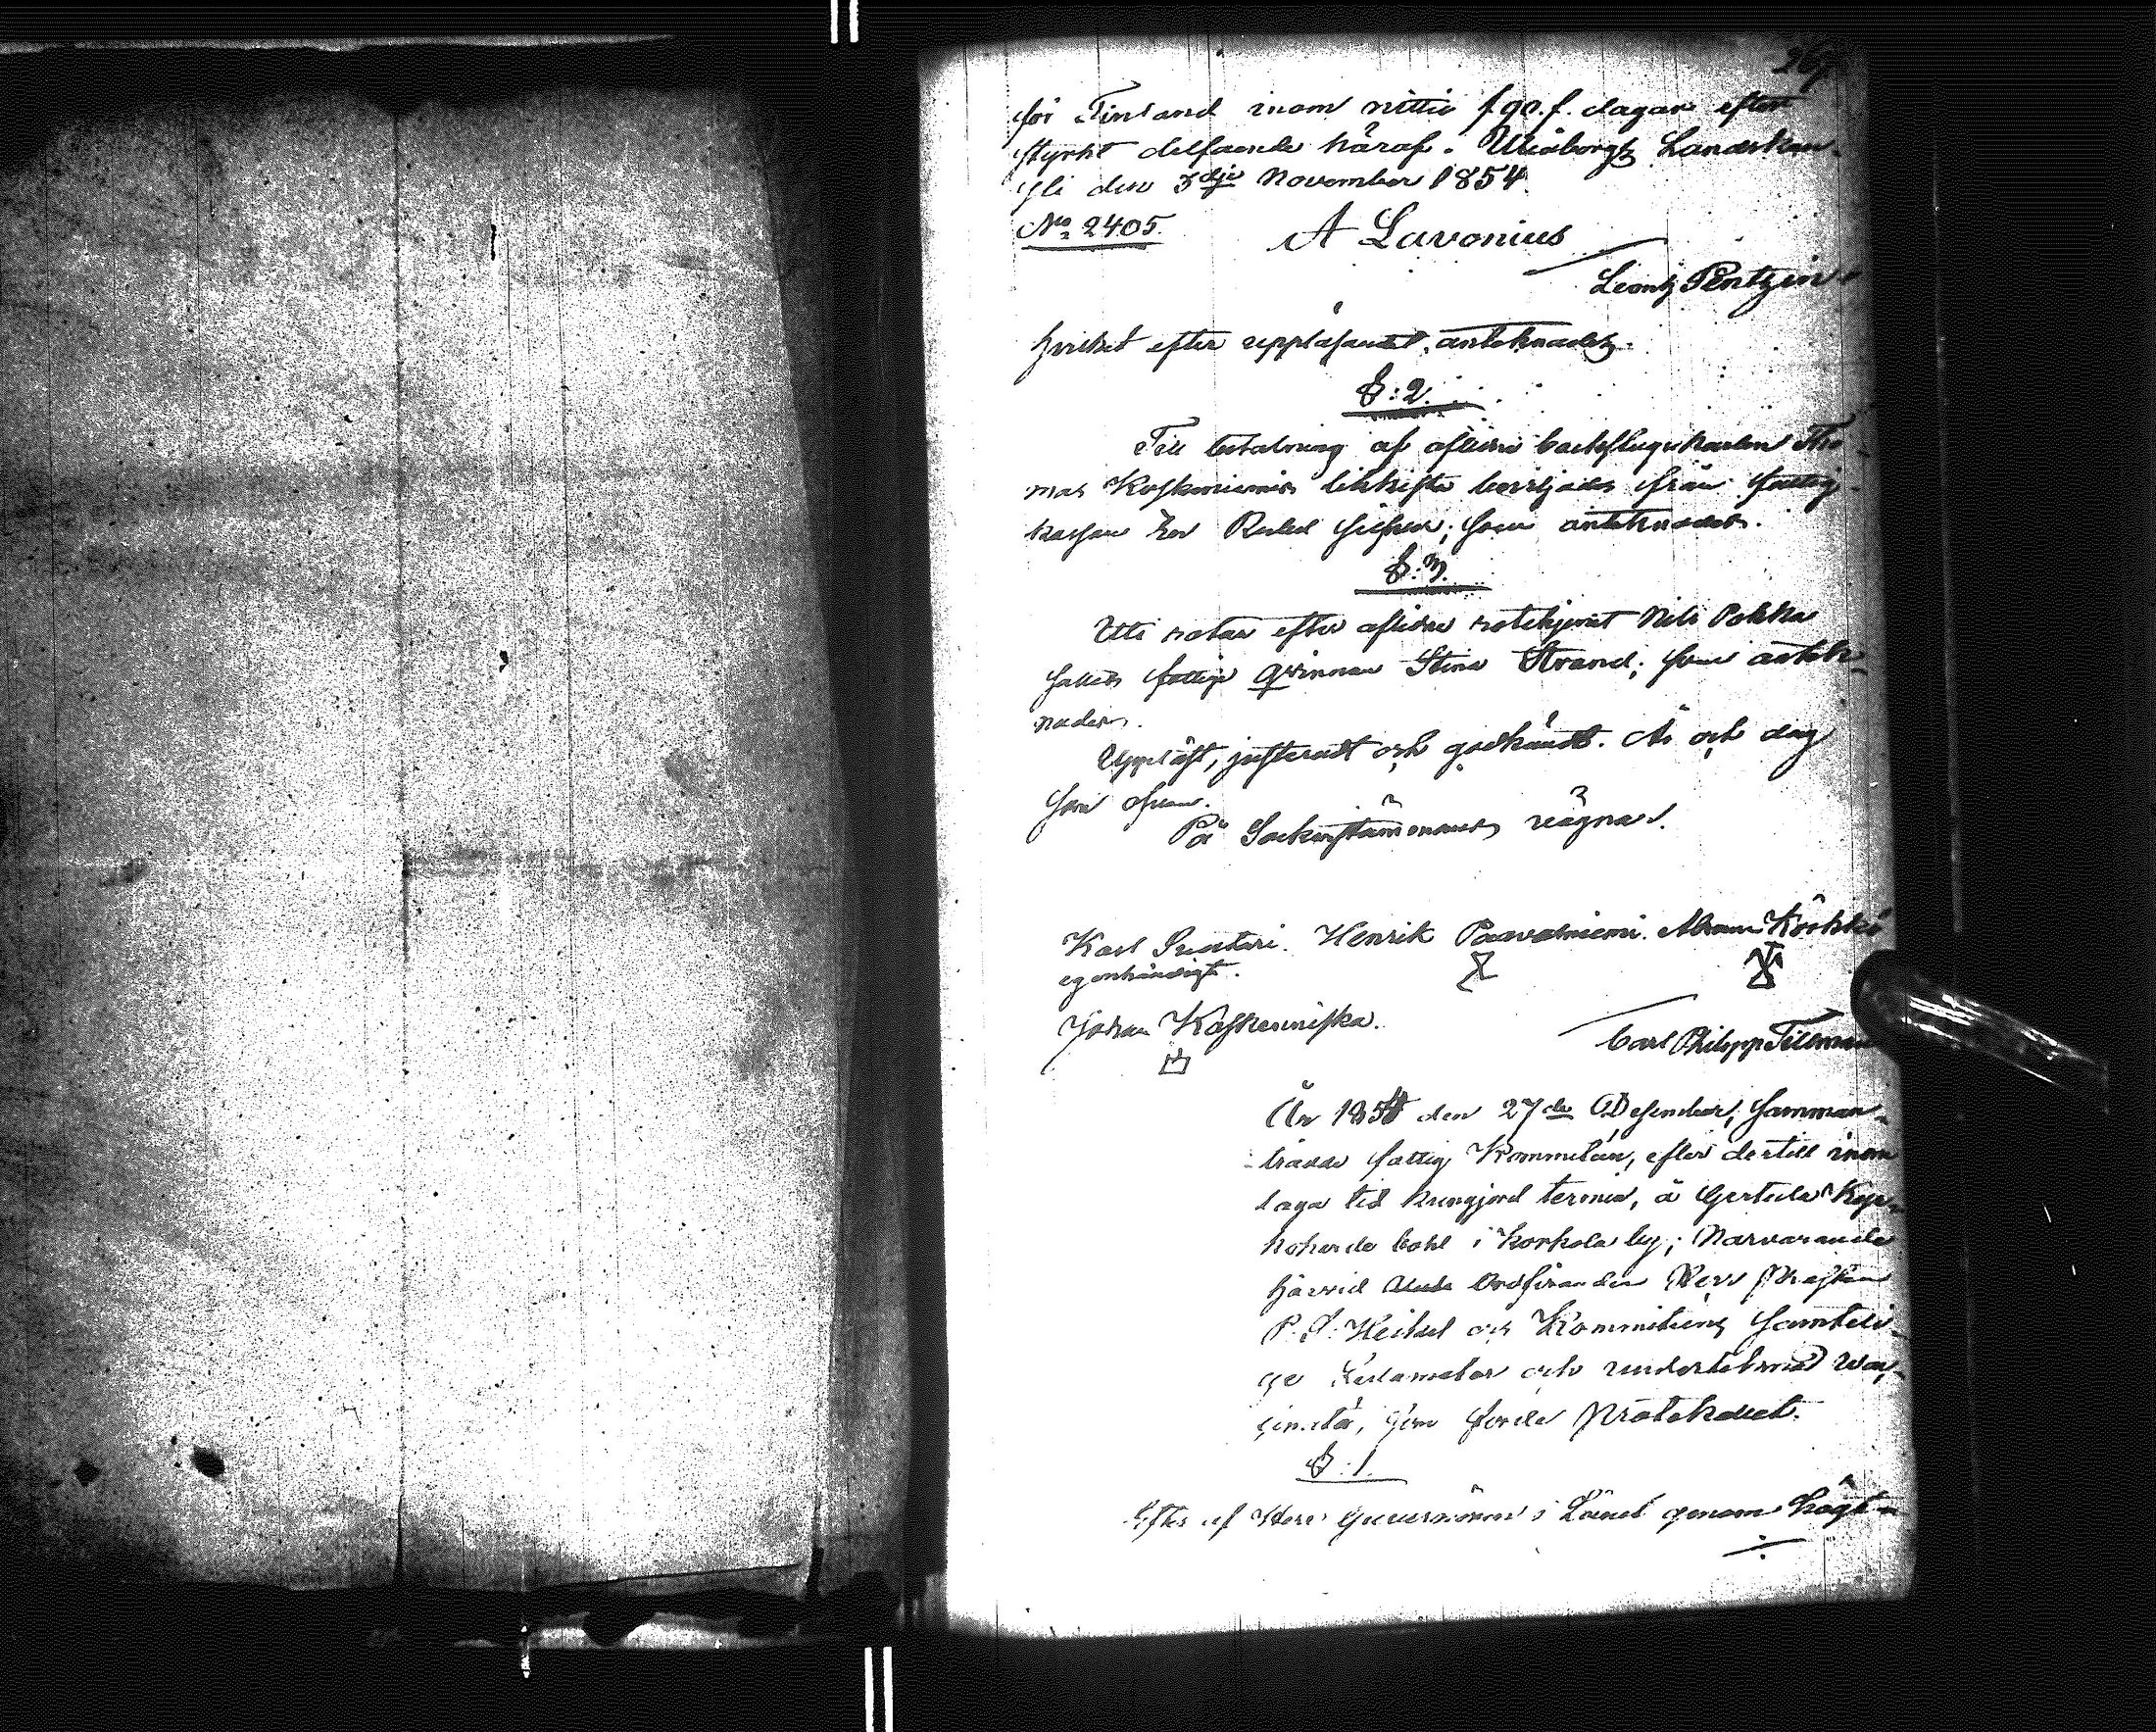 267
för Finland inom nittio f.90.f. dagar efter
styrkt delfaende häraf. Uleåborgs Landskan-
sli den 3dje November 1854.
No 2405. A Lavonius
Leontz Pentzin
hvilket efter uppläsandet, antecknades.
§:2.
Till betalning af aflidne backstugukarlen Tho-
mas Koskeniemis likkista beviljades från fattig
kassan En Rubel Silfver; som antecknades.
§:3.
Uti rotar efter aflidne rotehjonet Nils Pokka
sattes fattige qvinnan Stina Strand; som anteck-
nades.
Uppläst, justeradt och godkändt. År och dag
som ofvan.
På Sockenstämmans vägnar.
Karl Suutari. Henrik Paavalniemi. Abram Körkkö
egenhändigt.
Johan Koskenniska.
Carl Philipp Tillman
År 1854 den 27de December, samman-
trädde fattig Kommitén, efter dertill inom
laga tid kungjord termin, å Gertula
bohl i Korkala by; Närvarande
härvid Ordföranden Herr Prosten
P. J. Heikel och Kommitens samteli-
ge Ledamöter och undertecknad vac-
cinatör, som förde Protokollet.
§:1.
Efter af Herr Guvernören i Länet genom högt-